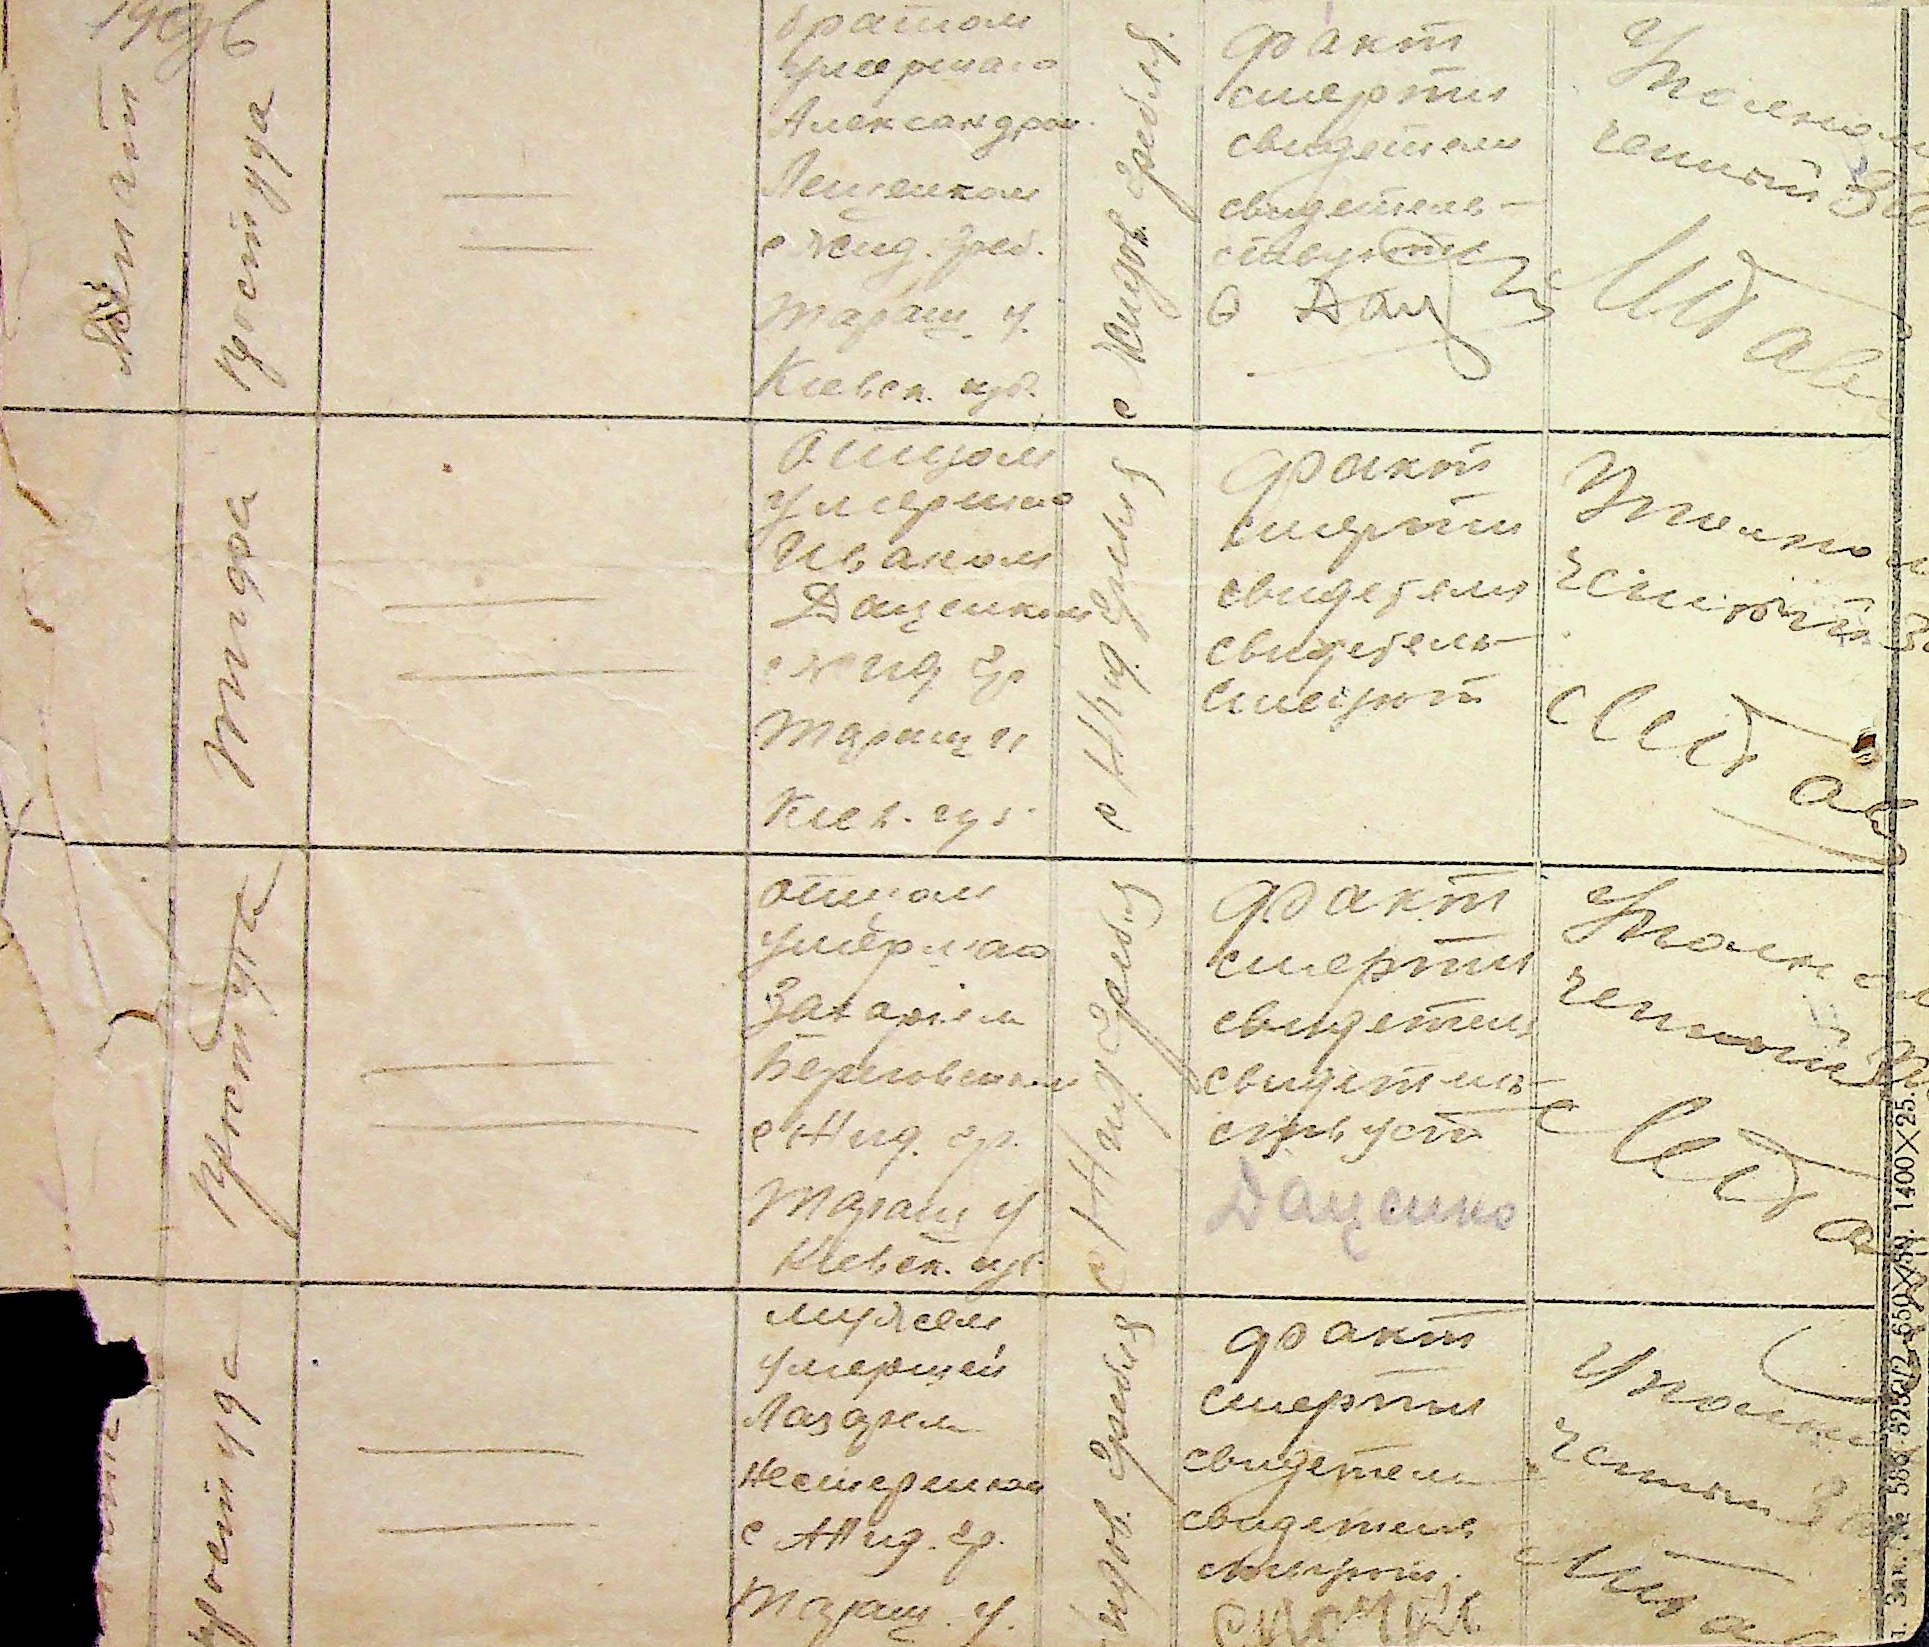 простуда
братом
умершаго
Александром
Лешенком
с Жид. Греб.
Таращ. у.
Киевск. губ.
с Жидов. Гребля.
факт
смерти
свидетели
свидетель-
ствуют
О Дац
Уполном
ченный За
Тифа
Отцом
умершаго
Иваном
Даценком
с Жид Гр
Таращ у
Киев. губ.
с Жид. Гребля
факт
смерти
свидетели
свидетель-
ствуют
Уполном
ченный За
простуда
отцом
умершаго
Захарием
с Жид. гр.
Таращ у
Киевск. губ.
с Жид. Гребля
факт
смерти
свидетели
свидетель-
ствуют
Даценко
Уполном
ченный
простуда
мужем
умершей
Лазарем
Нестеренком
с Жид. гр.
Таращ. у.
Жидов. Гребля
факт
смерти
свидетели
свидетель
ствуют.
Уполном
ченный За
Зак. № 586 1400×25.